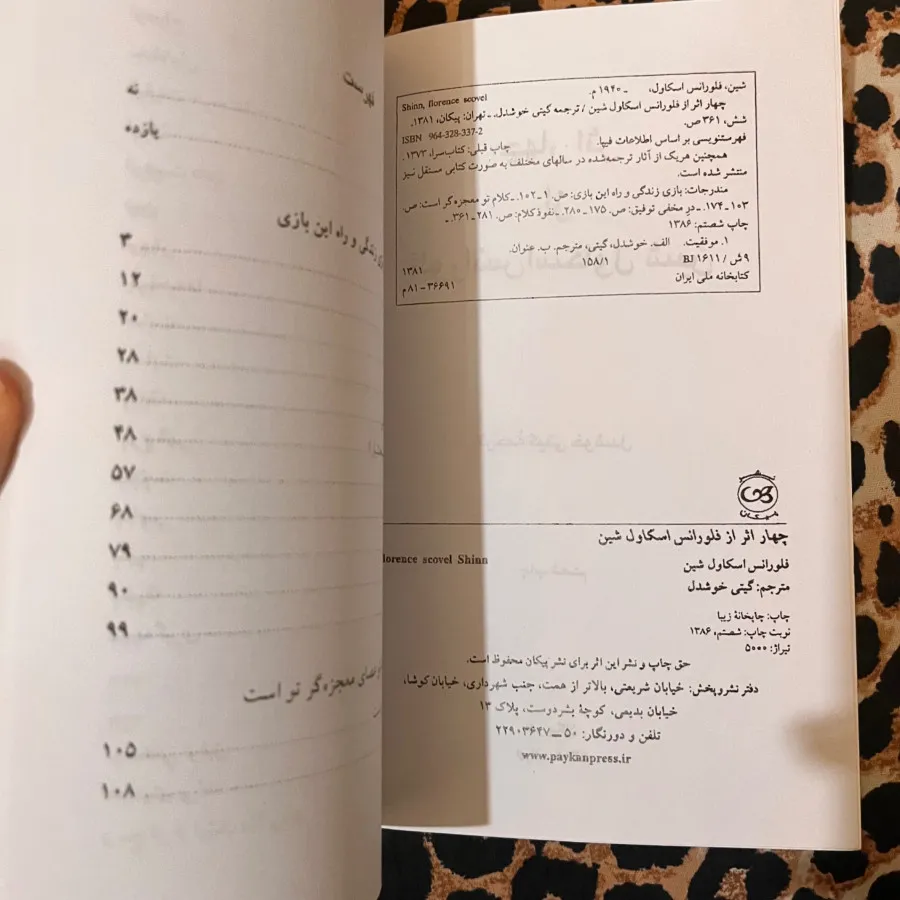 شین، فلورانس اسکاول، ـ ۱۹۴۰ م.
Shinn, florence scovel
چهار اثر از فلورانس اسکاول شین / ترجمه گیتی خوشدل. ـ تهران: پیکان، ۱۳۸۱.
شش، ۳۶۱ ص.
ISBN 964-328-337-2
فهرستنویسی بر اساس اطلاعات فیپا.
چاپ قبلی: کتاب‌سرا، ۱۳۷۳.
همچنین هریک از آثار ترجمه‌شده در سالهای مختلف به صورت کتابی مستقل نیز
منتشر شده است.
مندرجات: بازی زندگی و راه این بازی: ص. ۱ ـ ۱۰۲. ـ کلام تو معجزه‌گر است: ص.
۱۰۳ ـ ۱۷۴. ـ در مخفی توفیق: ص. ۱۷۵ ـ ۲۸۰. ـ نفوذ کلام: ص. ۲۸۱ ـ ۳۶۱. ـ
چاپ شصتم: ۱۳۸۶
۱. موفقیت. الف. خوشدل، گیتی، مترجم. ب. عنوان.
۹ ش / BJ ۱۶۱۱ ۱۵۸/۱
۱۳۸۱
کتابخانه ملی ایران ۳۶۶۹۱ ـ ۸۱ م
پیکان
چهار اثر از فلورانس اسکاول شین
فلورانس اسکاول شین
lorence scovel Shinn
مترجم: گیتی خوشدل
چاپ: چاپخانهٔ زیبا
نوبت چاپ: شصتم، ۱۳۸۶
تیراژ: ۵۰۰۰
حق چاپ و نشر این اثر برای نشر پیکان محفوظ است.
دفتر نشر و پخش: خیابان شریعتی، بالاتر از همت، جنب شهرداری، خیابان کوشا،
خیابان بدیعی، کوچهٔ بشردوست، پلاک ۱۳
تلفن و دورنگار: ۵۰ ــ ۲۲۹۰۳۶۴۷
www.paykanpress.ir
فهرست
نه
یازده
زندگی و راه این بازی
۳
۱۲
۲۰
۲۸
۳۸
۴۸
۵۷
۶۸
۷۹
۹۰
۹۹
معجزه‌گر تو است
۱۰۵
۱۰۸